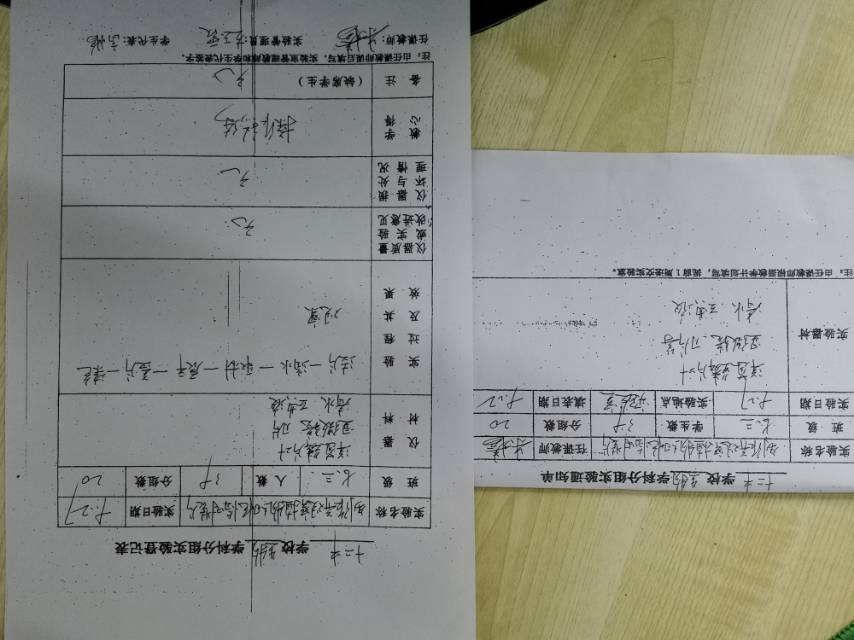 十二中 学校 生物 学科分组实验登记表
实验名称 制作并观察植物细胞临时装片 实验日期 9.27
班级 七三 人数 38 分组数 20
仪器材料 洋葱鳞片叶
显微镜
清水
实验过程及其效果 擦片—滴水—取材—展平—盖片—染色
观察
仪器质量或实验改进意见 无
仪器损坏与处理情况 无
教学心得
备注（缺席学生） 无
注：由任课教师课后填写，实验室管理教师和学生代表签字。
任课教师： 实验管理员： 学生代表：
十二中 学校 生物 学科分组实验通知单
实验名称 制作并观察植物细胞临时装片 任课教师
班级 七三 学生数 38 分组数 20
实验日期 9.27 实验地点 实验室 填表日期
实验器材 洋葱鳞片叶
显微镜
清水
注：由任课教师根据教学计划填写，提前1周递交实验室。